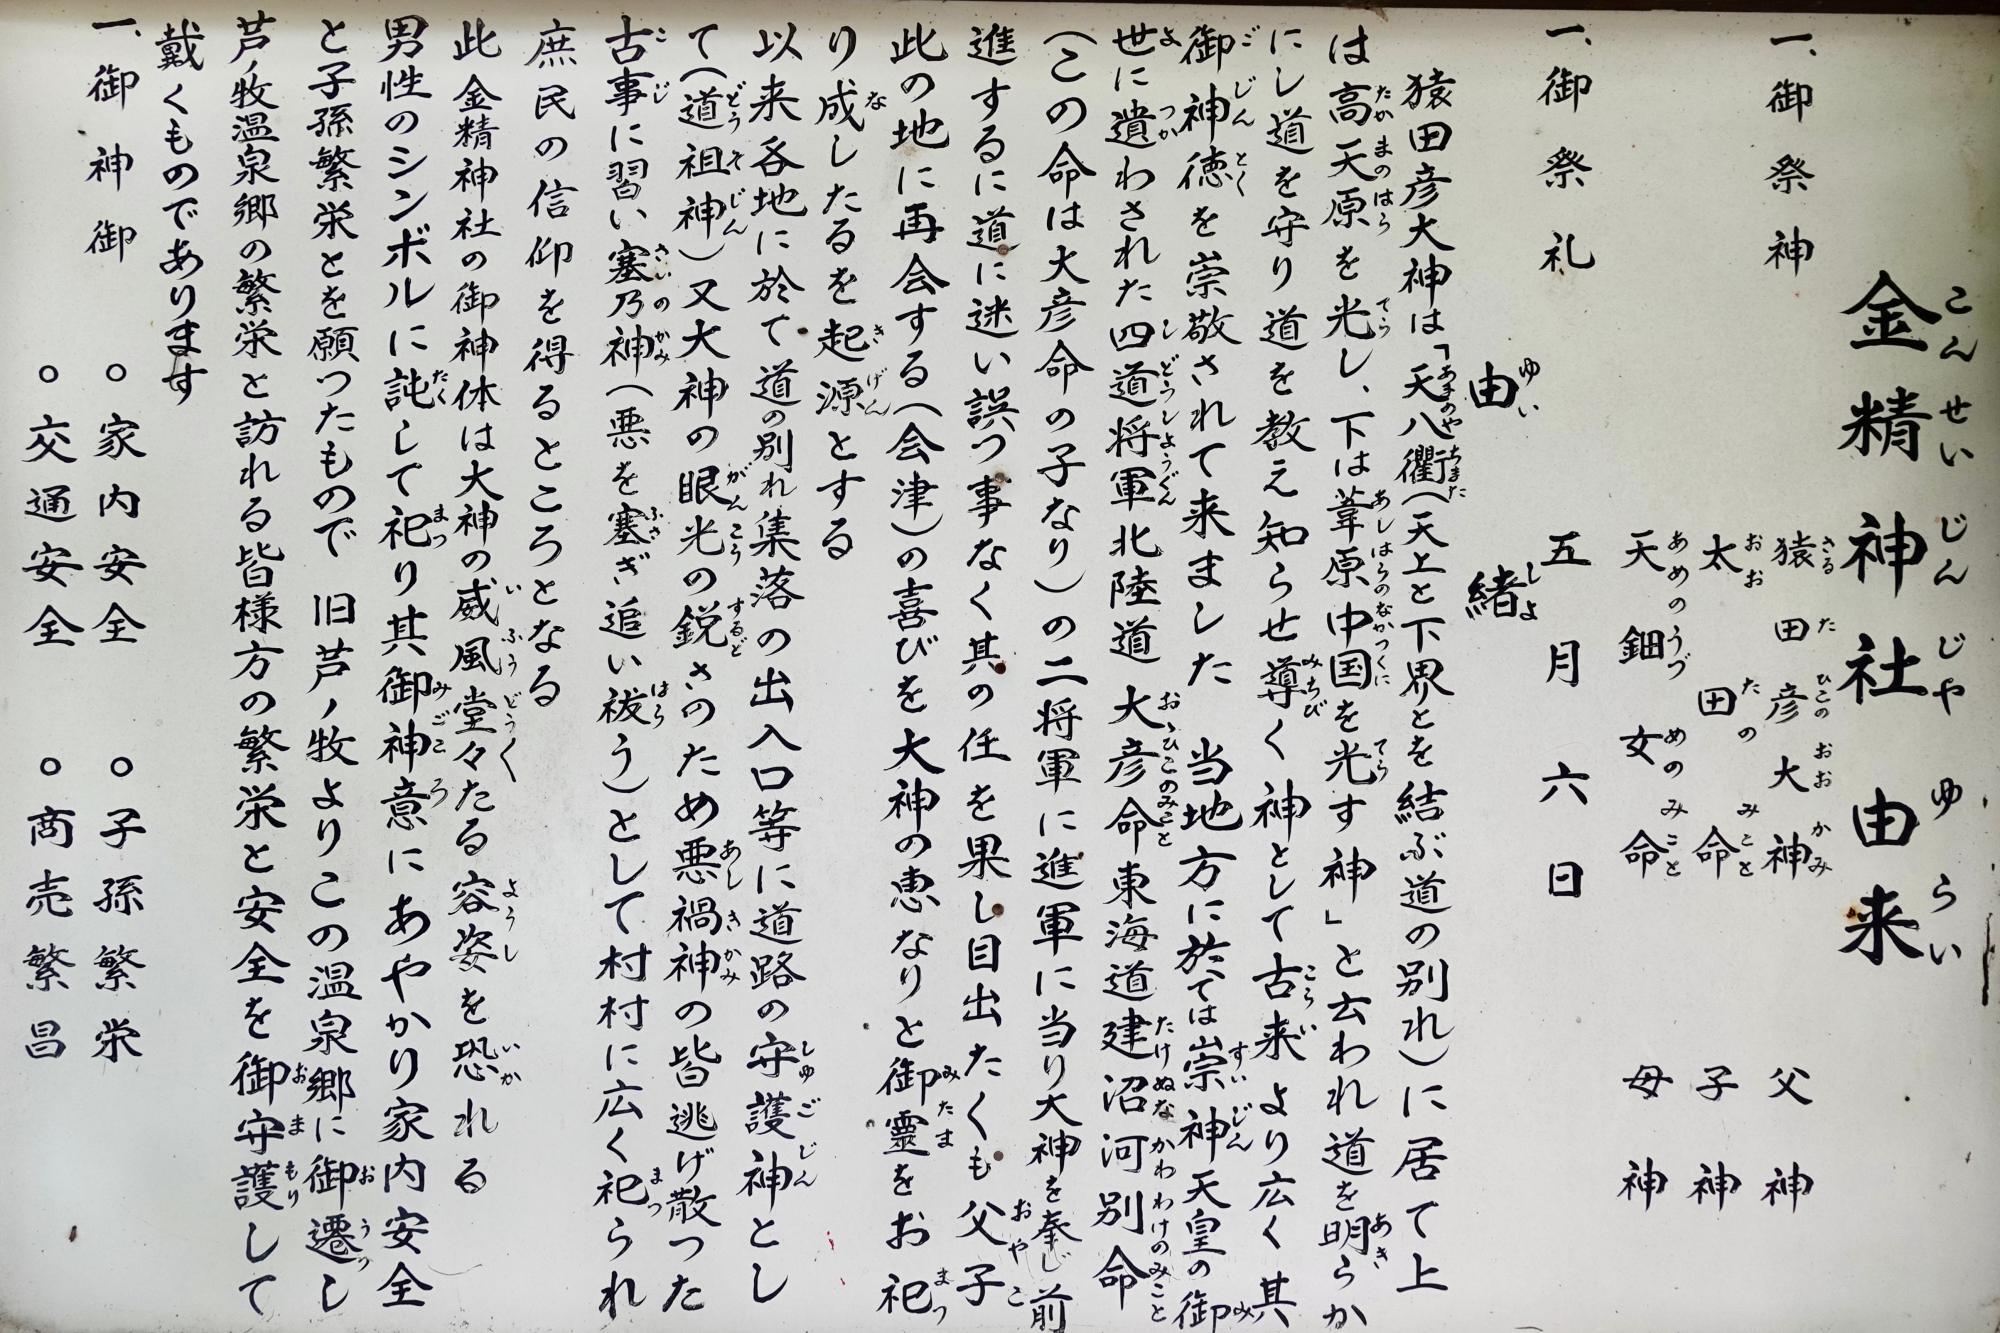 金精神社由来
一、御祭神　猿田彦大神　父神
太田命　子神
天鈿女命　母神
一、御祭礼　五月六日
由緒
猿田彦大神は「天八衢(天上と下界とを結ぶ道の別れ)に居て上
は高天原を光し、下は葦原中国を光す神」と云われ道を明らか
にし道を守り道を教え知らせ導く神として古来より広く其
御神徳を崇敬されて来ました　当地方に於ては崇神天皇の御
世に遣わされた四道将軍北陸道大彦命東海道建沼河別命
(この命は大彦命の子なり)の二将軍に進軍に当り大神を奉じ前
進するに道に迷い誤つ事なく其の任を果し目出たくも父子
此の地に再会する(会津)の喜びを大神の恵なりと御霊をお祀
り成したるを起源とする
以来各地に於て道の別れ集落の出入口等に道路の守護神とし
て(道祖神)又大神の眼光の鋭さのため悪禍神の皆逃げ散った
古事に習い塞乃神(悪を塞ぎ追い祓う)として村村に広く祀られ
庶民の信仰を得るところとなる
此金精神社の御神体は大神の威風堂々たる容姿を恐れる
男性のシンボルに託して祀り其御神意にあやかり家内安全
と子孫繁栄とを願つたもので　旧芦ノ牧よりこの温泉郷に御遷し
芦ノ牧温泉郷の繁栄と訪れる皆様方の繁栄と安全を御守護して
戴くものであります
一、御神御　○家内安全　○子孫繁栄
○交通安全　○商売繁昌